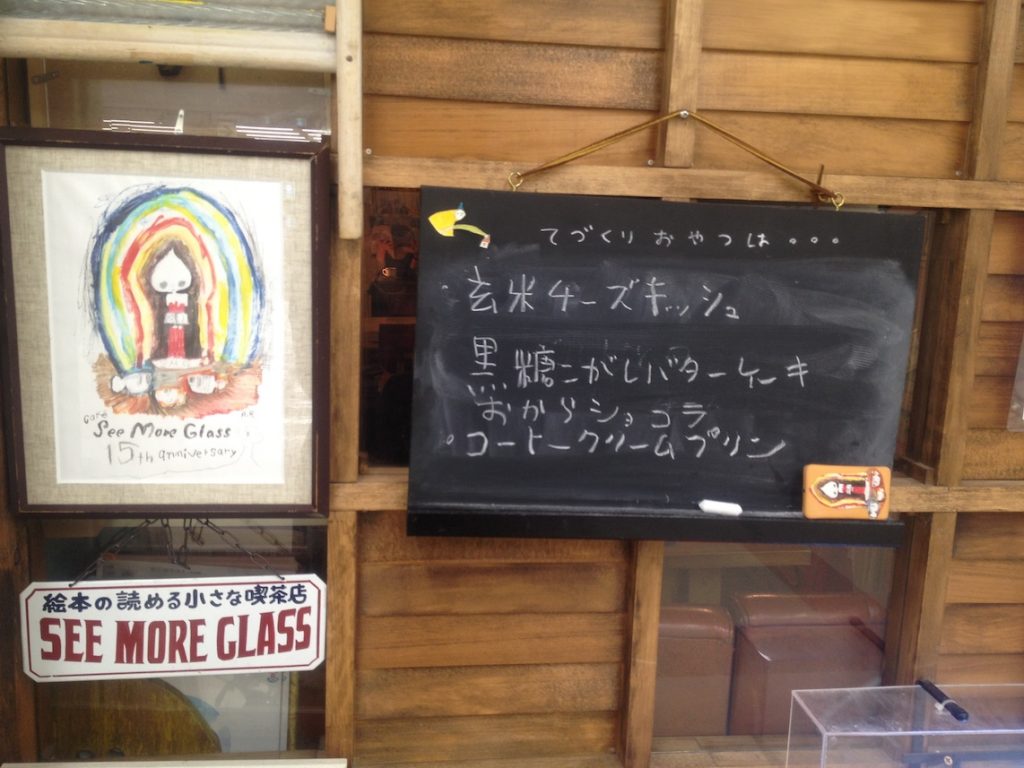 café A.R
See More Glass
15th anniversary
絵本の読める小さな喫茶店
SEE MORE GLASS
てづくりおやつは・・・
・玄米チーズキッシュ
黒糖こがしバターケーキ
おからショコラ
・コートークリームプリン